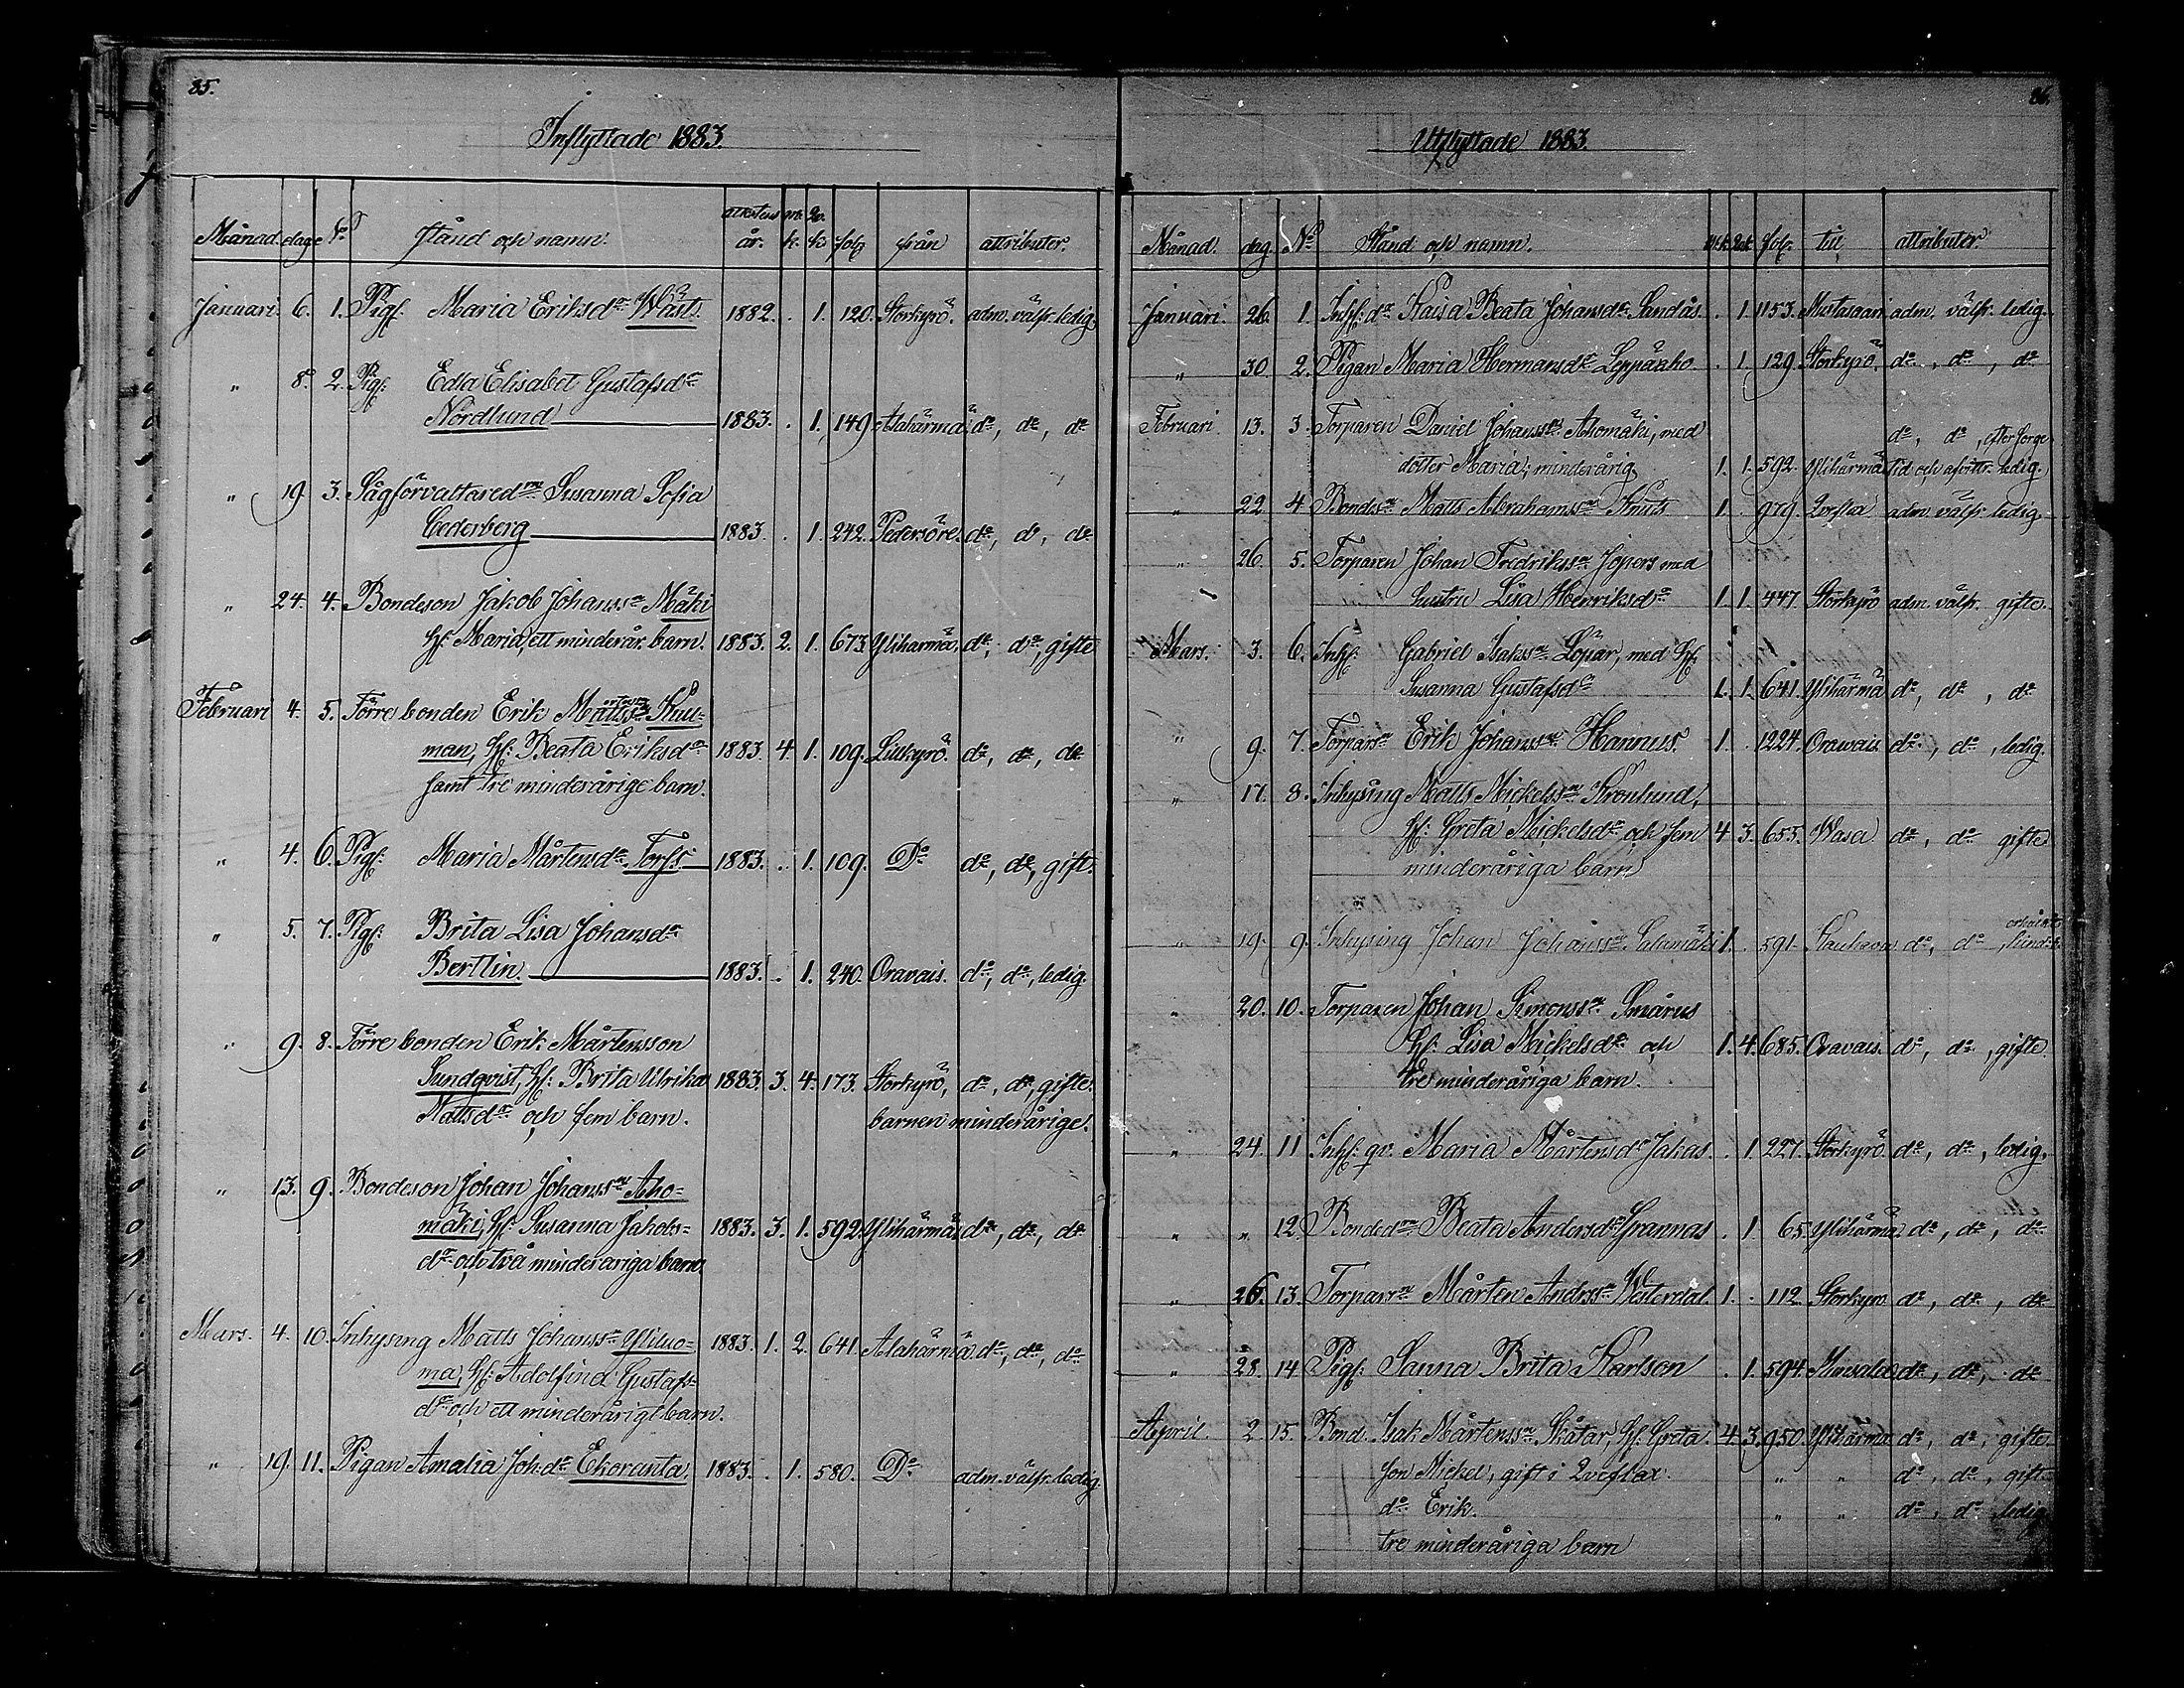 85.
Inflyttade 1883.
Månad. dag. No Stånd och namn. attestens år. mk. qv.k. fol. från attributer.
Januari. 6. 1. Pig: Maria Eriksda Wästs. 1882. . 1. 120. Storkyrö. adm. välfr. ledig.
" 8. 2. Pig: Edla Elisabet Gustafsda
Nordlund 1883. . 1. 149. Alahärmä. do, do, do
" 19. 3. Sågförvaltareda Susanna Sofia
Cederberg 1883. . 1. 242. Pedersöre. do, do, do
" 24. 4. Bondeson Jakob Johanssn Mäki
H: Maria, ett minderår. barn. 1883. 2. 1. 673. Ylihärmä. do, do, gifte
Februari 4. 5. Förre bonden Erik Mattssn Kuu=
man, H: Beata Eriksda 1883. 4. 1. 109. Lillkyrö. do, do, do
samt tre minderårige barn.
" 4. 6. Pig: Maria Mårtensda Torfs. 1883. . 1. 109. Do do, do, gift.
" 5. 7. Pig: Brita Lisa Johansda
Bertlin. 1883. . 1. 240. Oravais. do, do, ledig.
" 9. 8. Förre bonden Erik Mårtensson
Sundqvist, H: Brita Ulrika 1883. 3. 4. 173. Storkyrö, do, do, gifte.
Mattsda och fem barn. barnen minderårige.
" 13. 9. Bondeson Johan Johanssn Aho=
mäki, H: Susanna Jakobs= 1883. 3. 1. 592. Ylihärmä. do, do, do
da och två minderåriga barn.
Mars. 4. 10. Inhysing Matts Johanssn Yliluo= 1883. 1. 2. 641. Alahärmä do, do, do
ma, H: Adolfina Gustafs=
da och ett minderårigt barn.
" 19. 11. Pigan Amalia Joh.da Ekoranta. 1883. . 1. 580. Do adm. välfr. ledig.
86.
Utflyttade 1883.
Månad. dag. No Stånd och namn. M.k. Qv.k. fol. till attributer.
Januari. 26. 1. Inh: da Kaisa Beata Johansda Sandås. . 1. 1153. Mustasaari adm. välfr. ledig.
" 30. 2. Pigan Maria Hermansda Leppäaho . 1. 129. Storkyrö. do, do, do
Februari 13. 3. Torparen Daniel Johanssn Ahomäki, med do, do, efter sorge
dotter Maria, minderårig. 1. 1. 592. Ylihärmä tid och afvittr. ledig.
" 22. 4 Bondesn Matts Abrahamssn Knuts 1. 979. Qveflax adm. välfr. ledig.
" 26. 5. Torparen Johan Fredrikssn Jopers med
hustru Lisa Henriksda 1. 1. 447. Storkyrö adm. välfr. gifte.
Mars. 3. 6. Inh: Gabriel Isakssn Löpar, med H:
Susanna Gustafsda 1. 1. 641. Ylihärmä do, do, do
" 9. 7. Torparesn Erik Johanssn Hannus. 1. . 1224. Orawais. do, do, ledig.
" 17. 8. Inhysing Matts Mickelssn Kronlund,
H: Greta Mickelsda och fem 4 3. 653. Wasa do, do gifte.
minderåriga barn
" 19. 9. Inhysing Johan Johanssn Salamäki 1. . 591. do, do,
" 20. 10. Torparen Johan Simonssn Smärus
H: Lisa Mickelsda och 1. 4. 685. Oravais. do, do, gifte.
tre minderåriga barn.
" 24. 11 Inh: qv. Maria Mårtensda Jakas. . 1. 227. Storkyrö. do, do, ledig.
" " 12. Bondeda Beata Andersda Grannas . 1. 65. Ylihärmä. do, do, do
" 26. 13. Torparesn Mårten Andrssn Westerdal. 1. . 112. Storkyro. do, do, do
" 28. 14. Pig: Sanna Brita Karlson . 1. 594. Munsala. do, do, do
April. 2 15. Bond. Isak Mårtenssn Skåtar, H: Greta. 4. 3. 950. Ylihärmä do, do, gifte.
son Mickel, gift i Qveflax. " " do, do, gift
do Erik. " " do, do, ledig
tre minderåriga barn